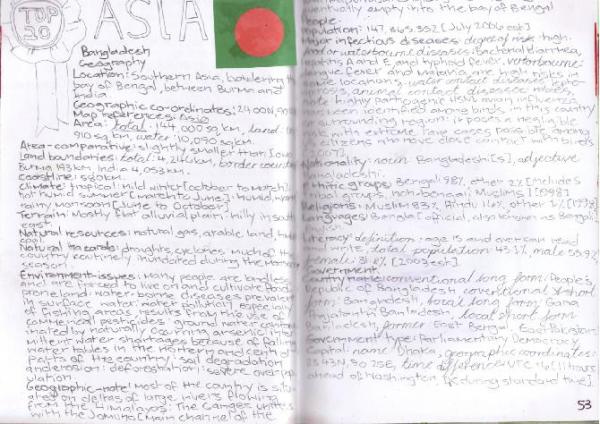 TOP
20
ASIA
Bangladesh
Geography
Location: Southern Asia, bordering the
bay of Bengal, between Burma and
India
Geographic co-ordinates: 24 00N, 90
Map references: Asia
Area: total: 144,000 sq km, land:
910 sq km, water: 10,090 sq km
Area-comparative: slightly smaller than Iowa
Land boundaries: total: 4,246 km, border countries
Burma 193 km, India 4,053 km.
Coastline: 580 km.
Climate: tropical: mild winter [october to March]
hot humid summer [march to June]: humid, warm
rainy monsoon [June to October]
Terrain: Mostly flat alluvial plain: hilly in south
east.
Natural resources: natural gas, arable land,
coal.
Natural hazards: droughts, cyclones much of the
country routinely inundated during the
season
Environment-issues: Many people are landless
and are forced to live on and cultivate flood
prone land: water-borne diseases prevalent
in surface water: water pollution especially
of fishing areas, results from the use of
commercial pesticides: ground water contaminated
by naturally occurring arsenic: inter
mittent water shortages because of falling
water tables in the northern and central
parts of the country: soil degradation
and erosion: deforestation: severe over pop
ulation
Geographic-note: Most of the country is situ
ated on deltas of large rivers flowing
from the Himalayas: The Ganges unites
with the Jamuna [main channel of the
eventually empty into the bay of Bengal
People
Population: 147,365,352 [July 2006 est]
Major infectious diseases: degree of risk: high
food or waterborne diseases: Bacterial diarrhea,
hepatitis A and E, and typhoid fever. vectorborne:
dengue fever and Malaria are high risks in
some locations, water contact disease:
animal contact disease: rabies,
note: highly pathogenic H5N1 avian influenza
has been identified among birds in this country
or surrounding region: it poses a negligible
risk with extreme rare cases possible among
citizens who have close contact with birds
Nationality: noun: Bangladeshi[s], adjective
Bangladeshi.
Ethnic groups: Bengali 98%, other 2% [includes
tribal groups, non-bengali Muslims] [1998]
Religions: Muslim 83%, Hindu 16%, other 1% [1998]
Languages: Bangla [official, also known as Bengali]
English
Literacy: definition: age 15 and over can read
write. total population: 43.1%, male 53.9%
female: 31.8% [2003 est].
Government
Country name: conventional long form: People's
Republic of Bangladesh conventional short
form: Bangladesh, local long form: Gana
Prajatantri Bangladesh, local short form
Bangladesh, former: East Bengal, East Pakistan
Government type: Parliamentary Democracy
Capital: name: Dhaka, geographic coordinates:
23 43N, 90 25E, time difference: UTC +6 [11 hours
ahead of Washington, DC during standard time].
53